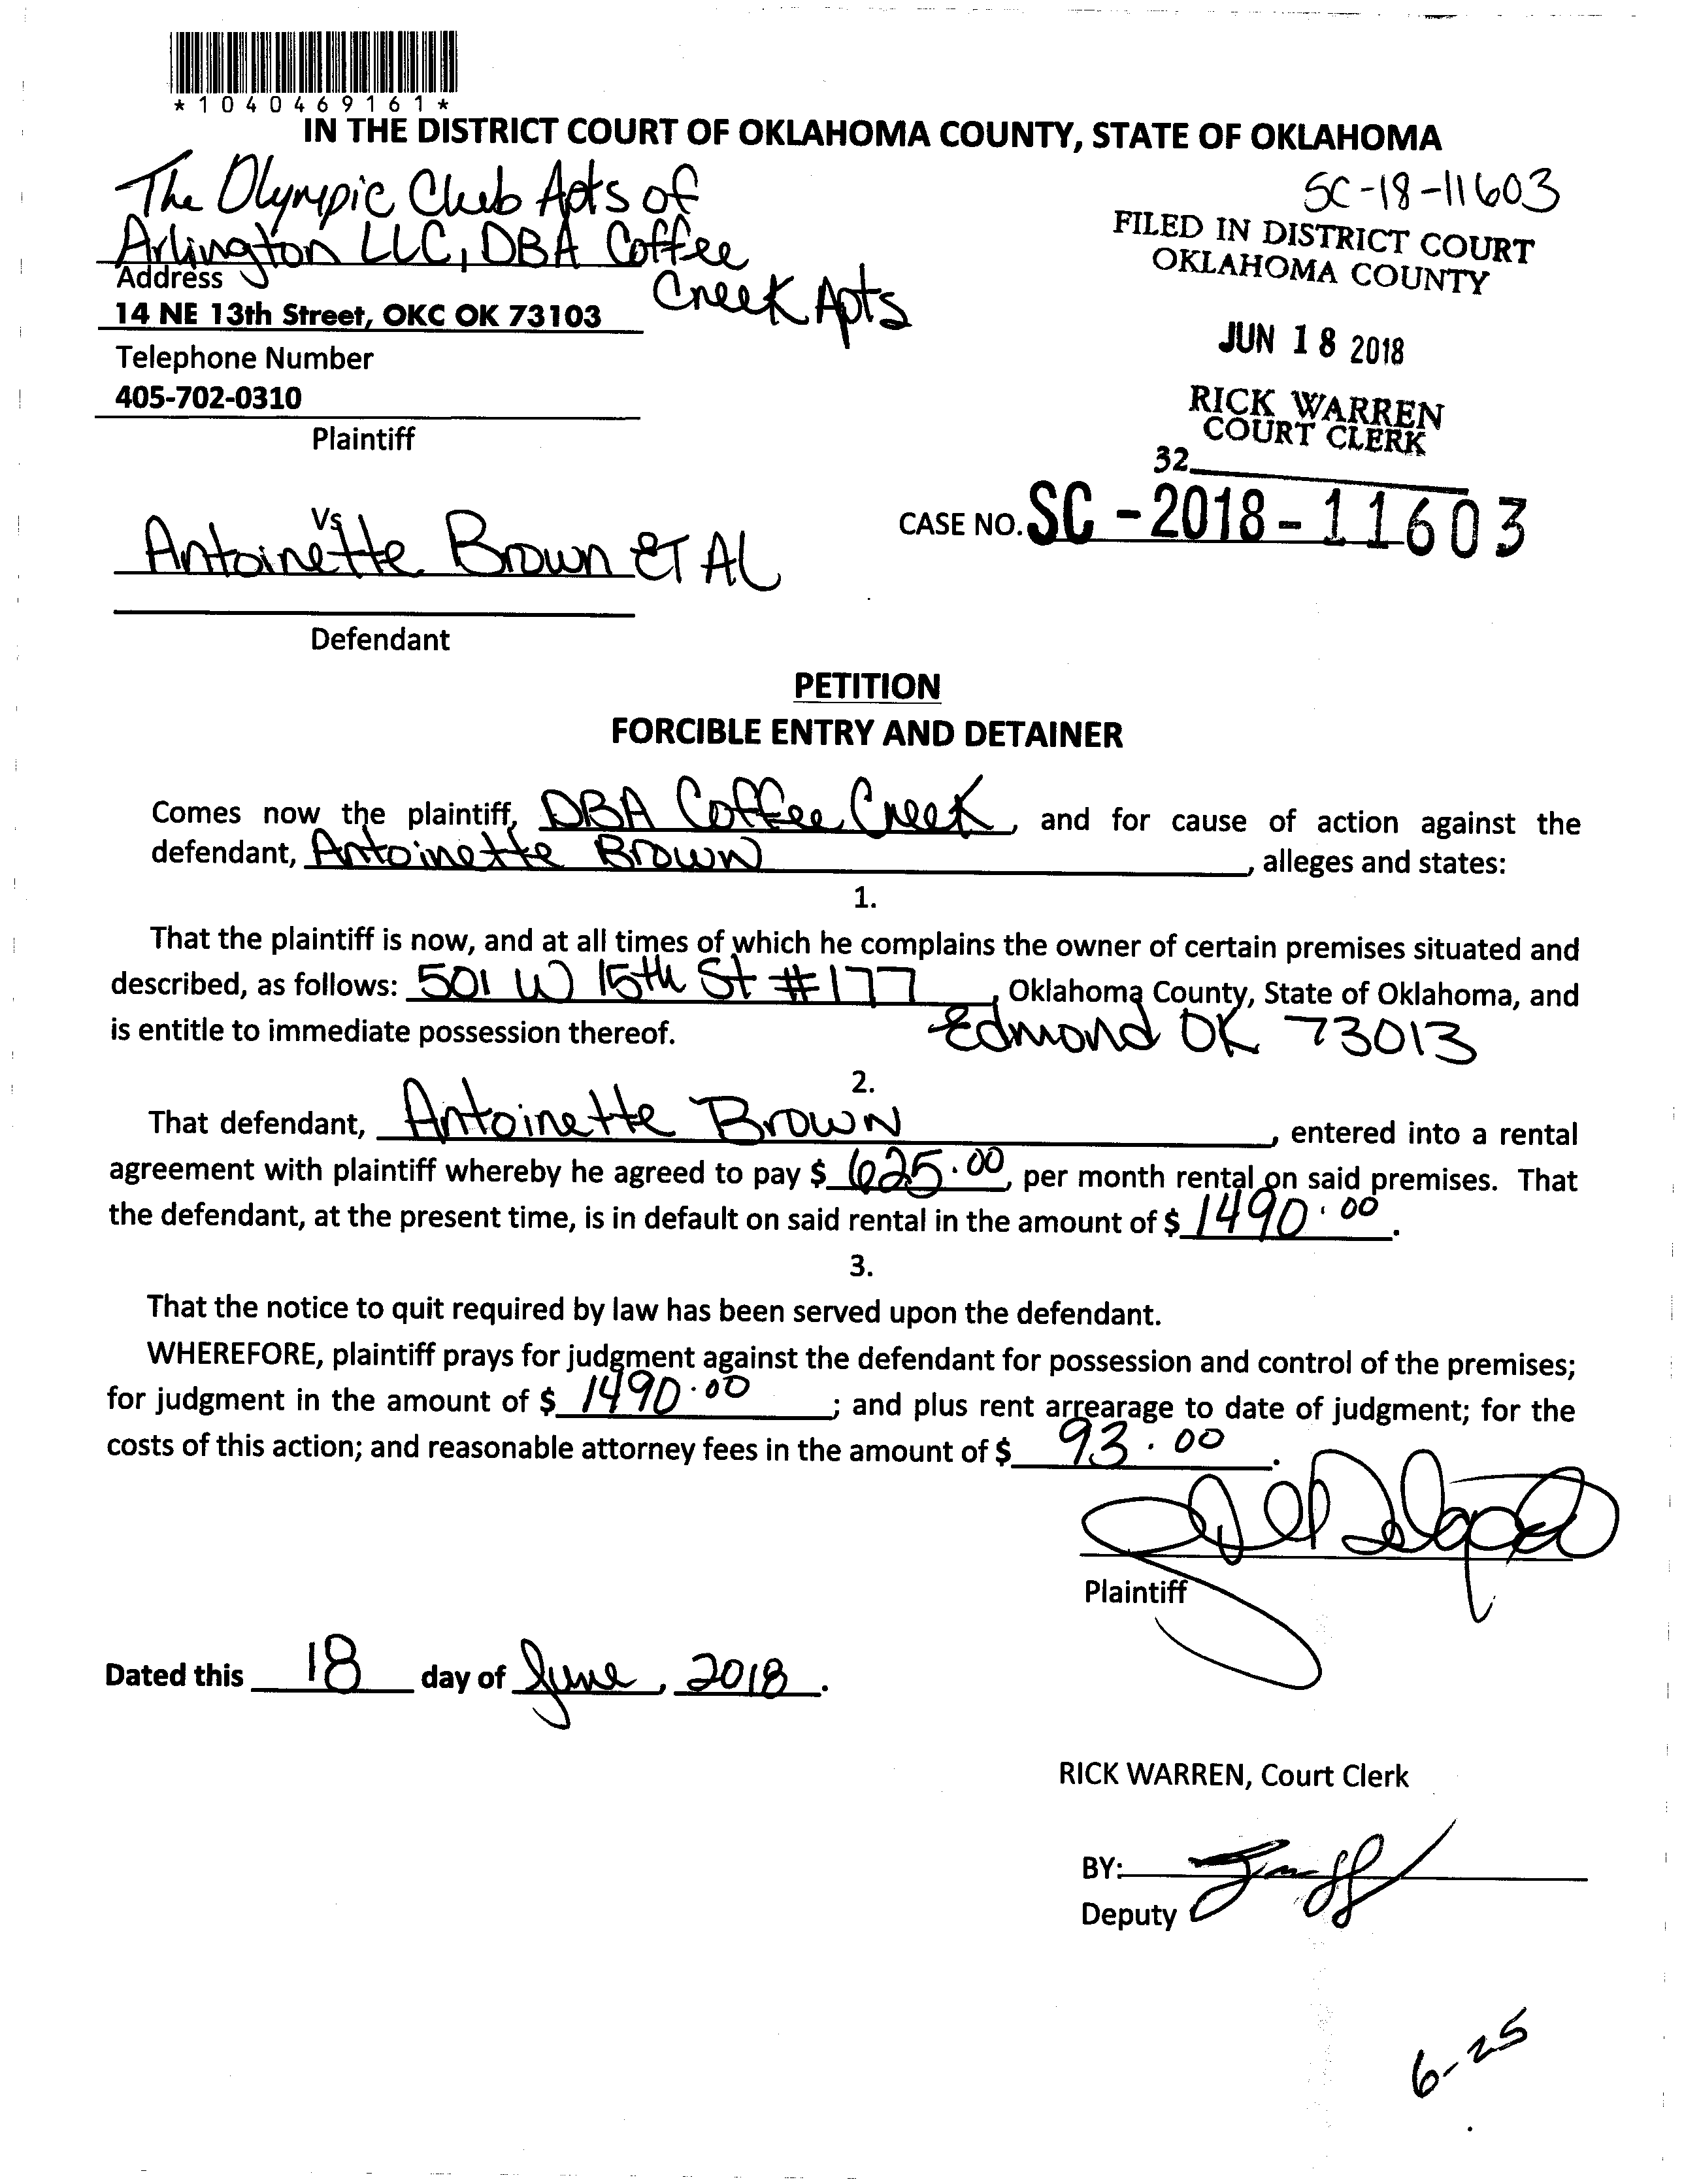 *1040469161*
IN THE DISTRICT COURT OF OKLAHOMA COUNTY, STATE OF OKLAHOMA
The Olympic Club Apts of
Arlington LLC, DBA Coffee
Creek Apts
Address
14 NE 13th Street, OKC OK 73103
Telephone Number
405-702-0310
Plaintiff
SC-18-11603
FILED IN DISTRICT COURT
OKLAHOMA COUNTY
JUN 18 2018
RICK WARREN
COURT CLERK
32
CASE NO. SC-2018-11603
Vs
Antoinette Brown ET AL
Defendant
PETITION
FORCIBLE ENTRY AND DETAINER
Comes now the plaintiff, DBA Coffee Creek, and for cause of action against the
defendant, Antoinette Brown, alleges and states:
1.
That the plaintiff is now, and at all times of which he complains the owner of certain premises situated and
described, as follows: 501 W 15th St #177, Oklahoma County, State of Oklahoma, and
is entitle to immediate possession thereof. Edmond OK 73013
2.
That defendant, Antoinette Brown, entered into a rental
agreement with plaintiff whereby he agreed to pay $ 625.00, per month rental on said premises. That
the defendant, at the present time, is in default on said rental in the amount of $ 1490.00.
3.
That the notice to quit required by law has been served upon the defendant.
WHEREFORE, plaintiff prays for judgment against the defendant for possession and control of the premises;
for judgment in the amount of $ 1490.00; and plus rent arrearage to date of judgment; for the
costs of this action; and reasonable attorney fees in the amount of $ 93.00.
Plaintiff
Dated this 18 day of June, 2018.
RICK WARREN, Court Clerk
BY:
Deputy
6-25